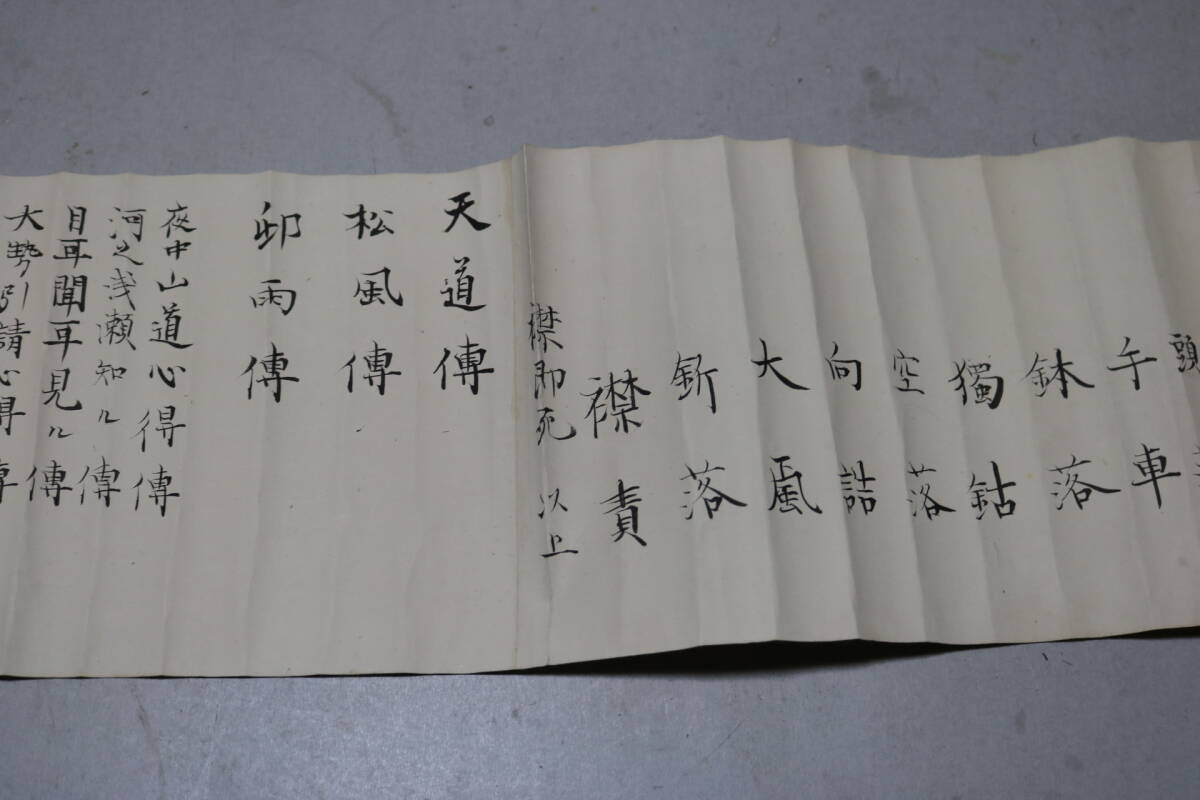 頭
手車
鉢落
獨鈷
空落
向詰
大風
釿落
襟責
襟即死 以上
天道傳
松風傳
邸雨傳
夜中山道心得傳
河之浅瀬知ル傳
目耳聞耳見ル傳
大勢引請心得傳